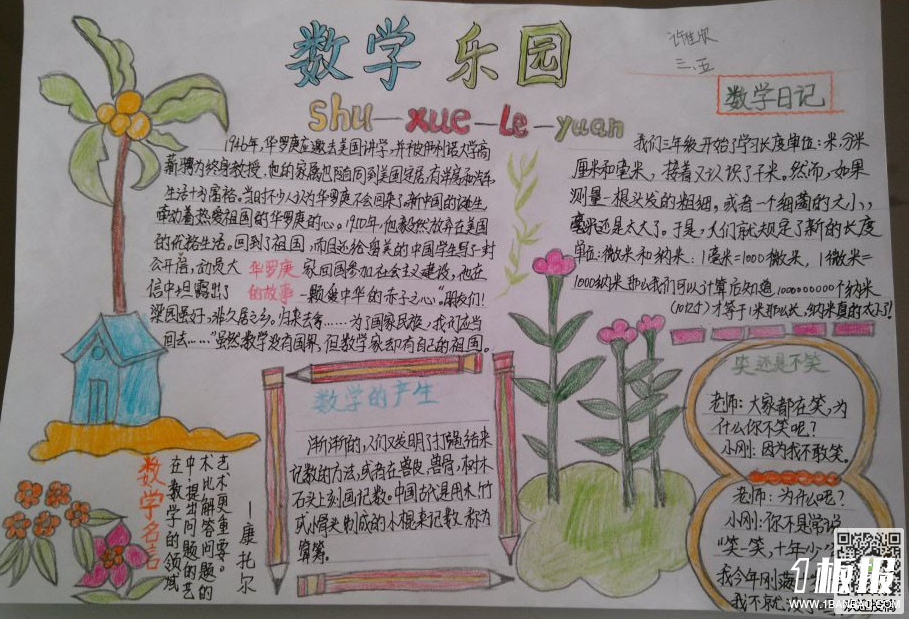 数学乐园
shu—xue—Le—yuan
三、五
数学日记
1946年,华罗庚应邀去美国讲学,并被伊利诺大学高
薪聘为终身教授,他的家属也随同到美国定居,有洋房和汽车,
生活十分富裕。当时不少人认为华罗庚不会回来了。新中国的诞生,
牵动着热爱祖国的华罗庚的心。1950年,他毅然放弃在美国
的优裕生活。回到了祖国,而且还给留美的中国学生写了一封
公开信,动员大家回国参加社会主义建设,他在
信中坦露出了一颗爱中华的赤子之心"朋友们!
梁园虽好,非久居之乡。归来去兮……为了国家民族,我们应当
回去……"虽然数学没有国界,但数学家却有自己的祖国。
华罗庚
的故事
我们三年级开始学习长度单位:米、分米
厘米和毫米,接着又认识了千米。然而,如果
测量一根头发的粗细,或者一个细菌的大小,
毫米还是太大了。于是,人们就规定了新的长度
单位:微米和纳米:1毫米=1000微米,1微米=
1000纳米那么我们可以计算后知道,1000000000个纳米
(10亿个)才等于1米那么长,纳米真的太小了!
数学的产生
渐渐的,人们又发明了打绳结来
记数的方法,或者在兽皮,兽骨,树木
石头上刻画记数。中国古代是用木、竹
或小骨头制成的小棍来记数,称为
算筹。
数学名言
在数学的领域
中,提出问题的艺
术比解答问题的
艺术更重要。
—康托尔
笑还是不笑
老师:大家都在笑,为
什么你不笑呢?
小刚:因为我不敢笑。
老师:为什么呢?
小刚:你不是常说
"笑一笑,十年少
我今年刚满十
我不就没了
1板报
WWW.1BANBAO.COM
欢迎投稿